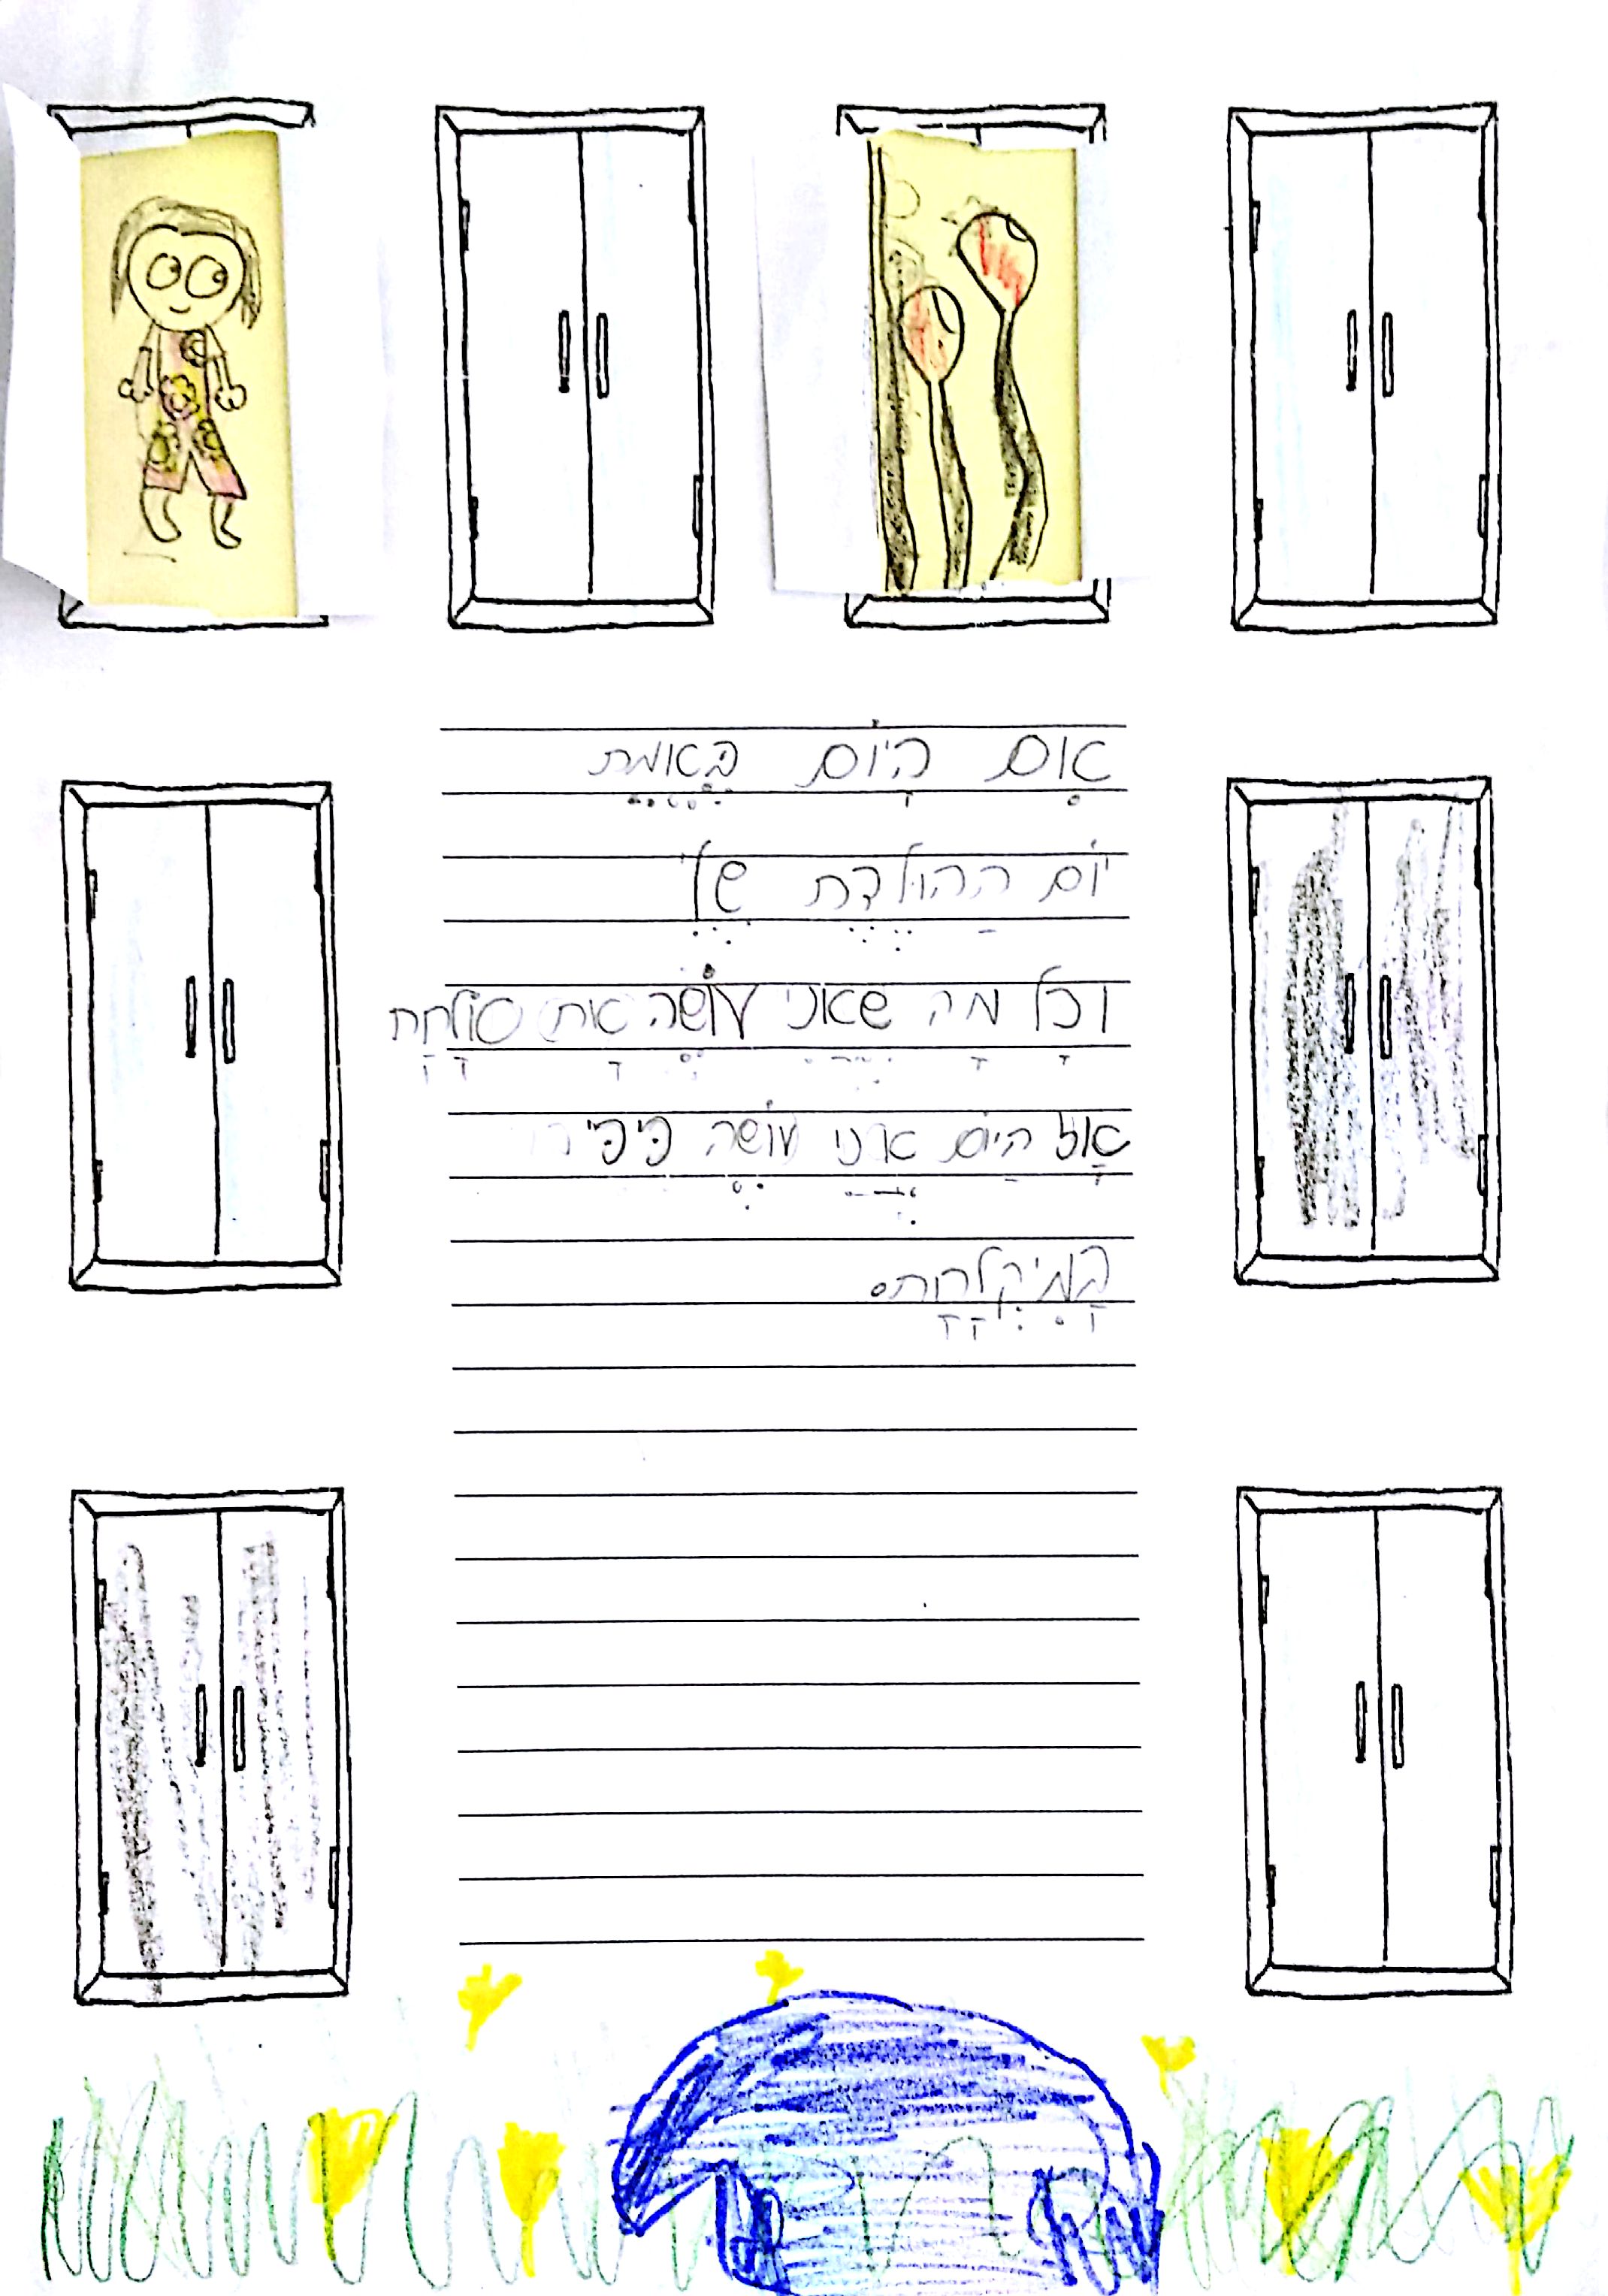 אִם הַיּוֹם בֶּאֱמֶת
יוֹם הַהוּלֶּדֶת שֶׁלִּי
וכָל מָה שֶׁאֲנִי עוֹשֶׂה אַת סוֹלַחַת
אָז הַיּוֹם אֲנִי עוֹשֶׂה פִּיפִּי
בַּמִּיקְלַחַת.